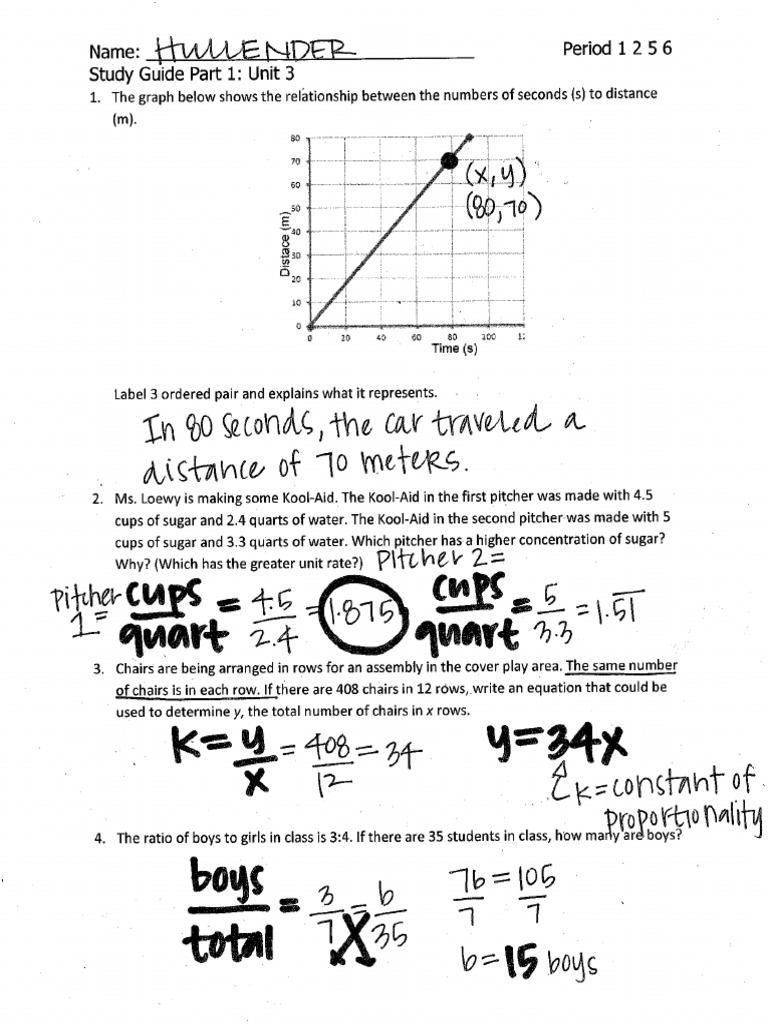 Name: HULLENDER Period 1 2 5 6
Study Guide Part 1: Unit 3
1. The graph below shows the relationship between the numbers of seconds (s) to distance
(m).
80
70
60
50
40
30
20
10
0
Distace (m)
(x, y)
(80,70)
0 20 40 60 80 100 1:
Time (s)
Label 3 ordered pair and explains what it represents.
In 80 seconds, the car traveled a
distance of 70 meters.
2. Ms. Loewy is making some Kool-Aid. The Kool-Aid in the first pitcher was made with 4.5
cups of sugar and 2.4 quarts of water. The Kool-Aid in the second pitcher was made with 5
cups of sugar and 3.3 quarts of water. Which pitcher has a higher concentration of sugar?
Why? (Which has the greater unit rate?) Pitcher 2=
Pitcher 1= cups/quart = 4.5/2.4 = 1.875 cups/quart = 5/3.3 = 1.5̅1̅
3. Chairs are being arranged in rows for an assembly in the cover play area. The same number
of chairs is in each row. If there are 408 chairs in 12 rows, write an equation that could be
used to determine y, the total number of chairs in x rows.
K= y/x = 408/12 = 34 y=34x
K=constant of
proportionality
4. The ratio of boys to girls in class is 3:4. If there are 35 students in class, how many are boys?
boys/total = 3/7 = b/35 7b/7 = 105/7
b=15 boys